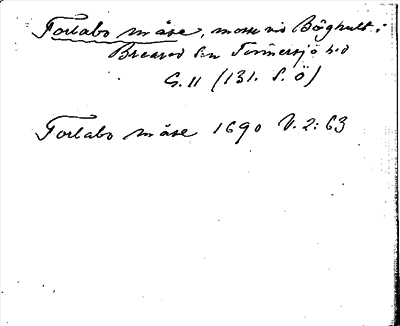 Forlabo måse, mosse vid Böghult i
Breared sn Tönnersjö hd
G.11 (131. S. Ö)
Forlabo måse 1690 V. 2: 63